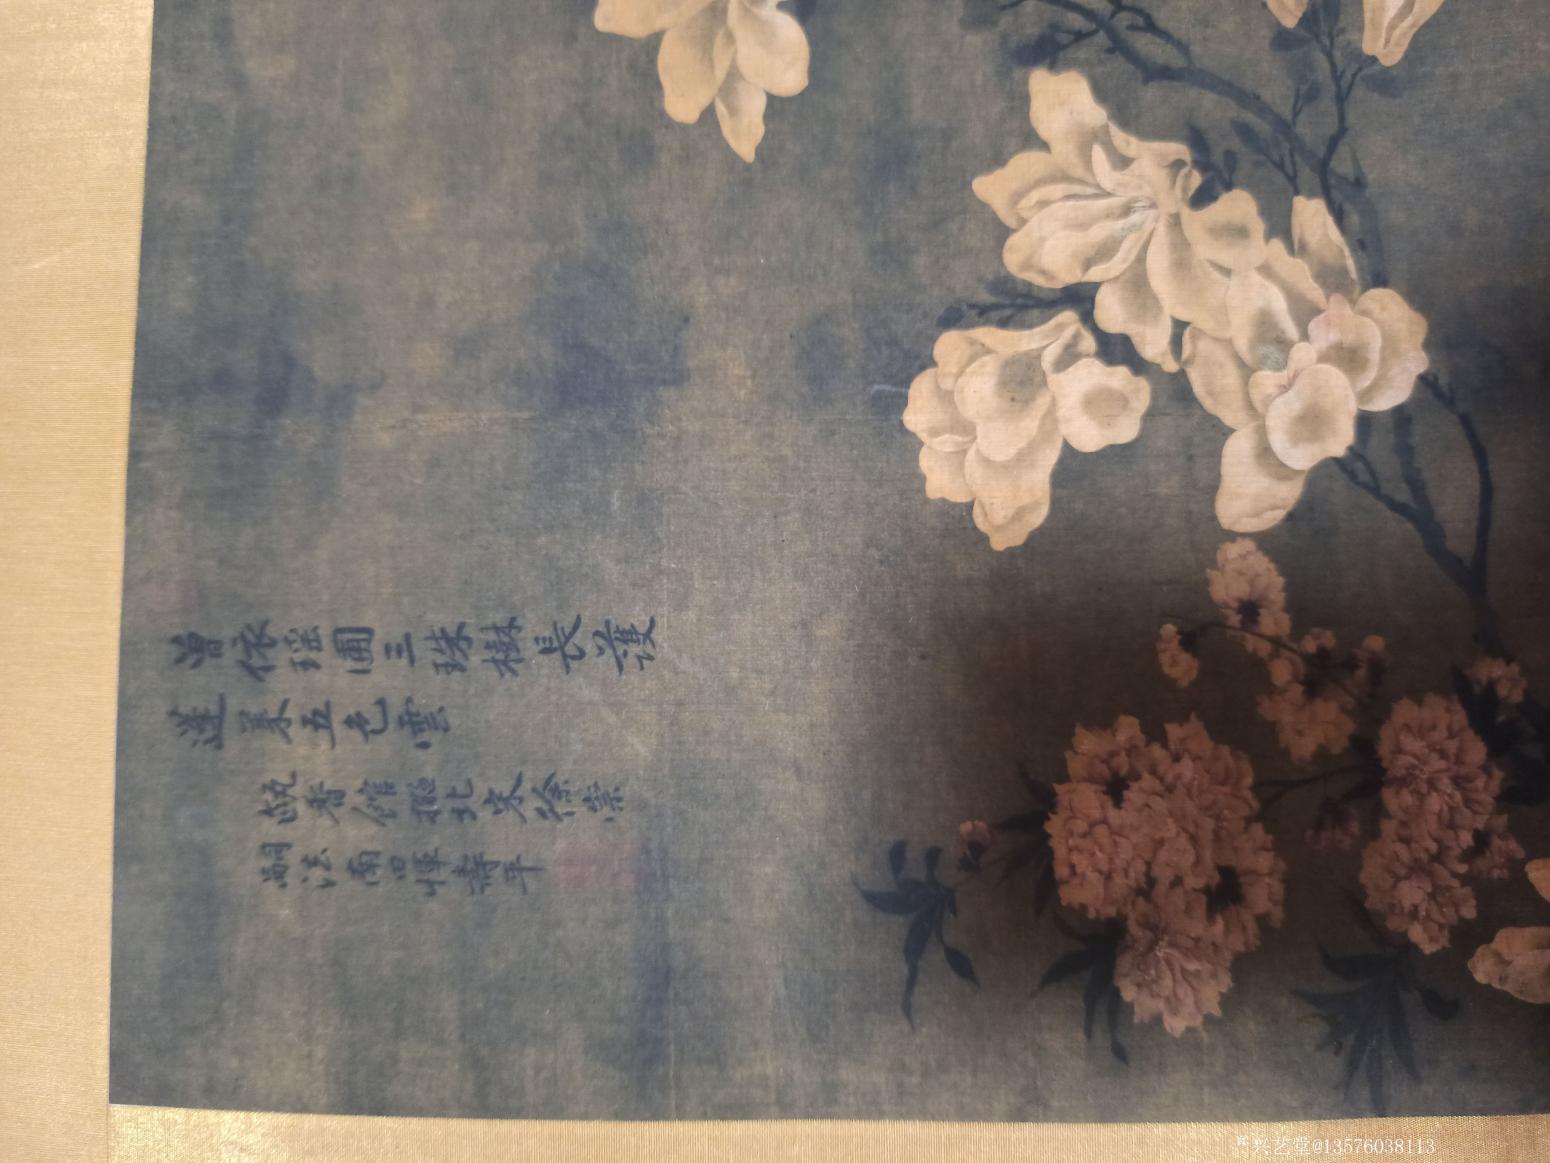 曾依瑶圃三珠樹長護
蓬萊五色雲
甌香館橅北宋徐崇
嗣法南田惲壽平
兴艺堂@13576038113